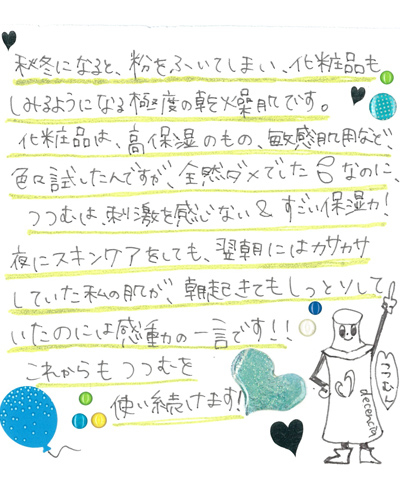 秋冬になると、粉をふいてしまい、化粧品も
しみるようになる極度の乾燥肌です。
化粧品は、高保湿のもの、敏感肌用など、
色々試したんですが、全然ダメでした なのに、
つつむは、刺激を感じない & すごい保湿力!
夜にスキンケアをしても、翌朝にはカサカサ
していた私の肌が、朝起きてもしっとりして
いたのには感動の一言です!!
これからもつつむを
使い続けます!
つつむ
decencia